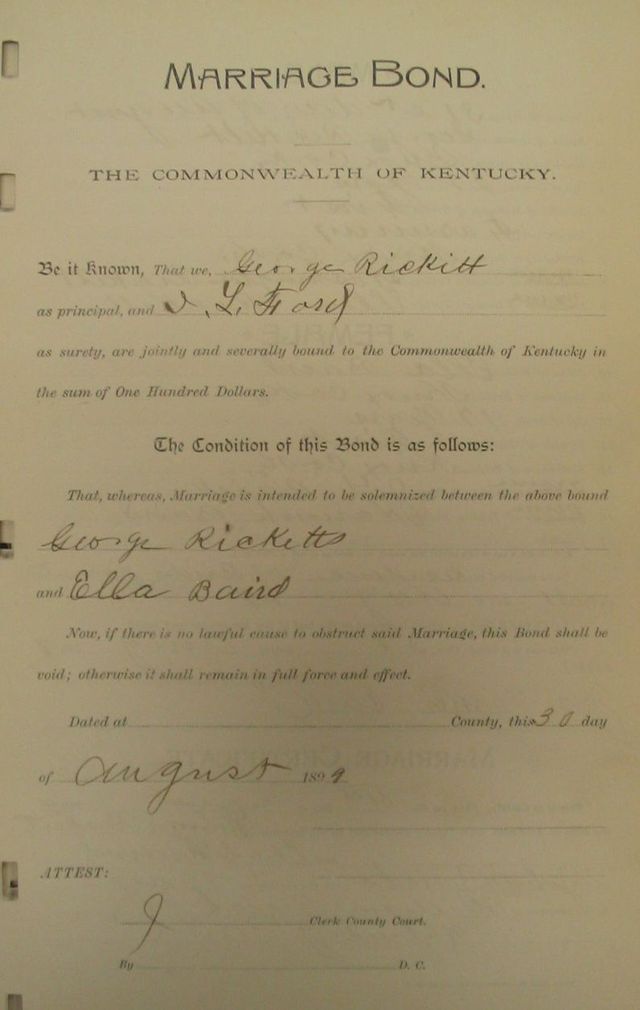 MARRIAGE BOND.
THE COMMONWEALTH OF KENTUCKY.
Be it Known, That we, George Rickitt
as principal, and J. L. Ford
as surety, are jointly and severally bound to the Commonwealth of Kentucky in
the sum of One Hundred Dollars.
The Condition of this Bond is as follows:
That, whereas, Marriage is intended to be solemnized between the above bound
George Ricketts
and Ella Baird
Now, if there is no lawful cause to obstruct said Marriage, this Bond shall be
void; otherwise it shall remain in full force and effect.
Dated at County, this 30 day
of August 1899
ATTEST:
J Clerk County Court.
By D. C.